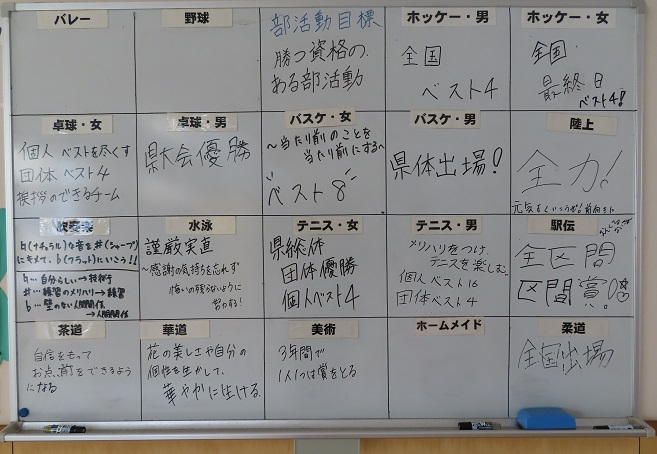 バレー
野球
部活動目標
勝つ資格の
ある部活動
ホッケー・男
全国
ベスト4
ホッケー・女
全国
最終日
ベスト4!
卓球・女
個人 ベストを尽くす
団体 ベスト4
挨拶のできるチーム
卓球・男
県大会優勝
バスケ・女
〜当たり前のことを
当たり前にする〜
"ベスト8"
バスケ・男
県体出場!
陸上
全力!
吹奏楽
♮(ナチュラル)な音を♯(シャープ)
にキメて、♭(フラット)にいこう!!
♮…自分らしい→技術行
♯…練習のメリハリ→練習
♭…壁のない人間関係
→人間関係
水泳
謹厳実直
〜感謝の気持ちを忘れず
悔いの残らないように
努力する!
テニス・女
県総体
団体優勝
個人ベスト4
テニス・男
メリハリをつけ
テニスを楽しむ。
個人 ベスト16
団体 ベスト4
駅伝
全区間
区間賞!
茶道
自信をもって
お点前をできるよう
になる
華道
花の美しさや自分の
個性を生かして、
華やかに生ける。
美術
3年間で
1人1つは賞をとる
ホームメイド
柔道
全国出場